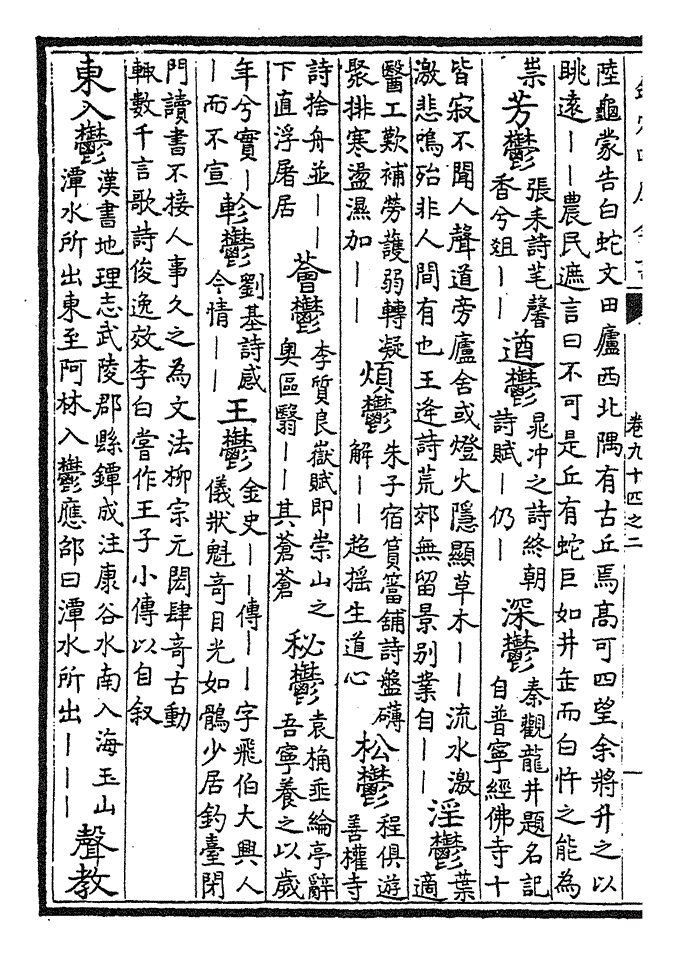 卷九十四之二
一
陸龜蒙告白蛇文田廬西北隅有古丘焉高可四望余將升之以
眺遠——農民遮言曰不可是丘有蛇巨如井缶而白忤之能為
祟
芳鬱
張耒詩芼馨
香兮俎——
遒鬱
晁冲之詩終朝
詩賦——仍—
深鬱
秦觀龍井題名記
自普寧經佛寺十
皆寂不聞人聲道旁廬舍或燈火隱顯草木——流水激
激悲鳴殆非人間有也王逄詩荒郊無留景别業自——
淫鬱
葉
適
醫工歎補勞護弱轉凝
聚排寒盪濕加——
煩鬱
朱子宿篔簹舖詩盤礴
解——超揺生道心
松鬱
程俱遊
善權寺
詩捨舟並——
下直浮屠居
薈鬱
李質良嶽賦即崇山之
奥區翳——其蒼蒼
秘鬱
袁桷垂綸亭辭
吾寧養之以歲
年兮實—
—而不宣
軫鬱
劉基詩感
令情——
王鬱
金史——傳——字飛伯大興人
儀狀魁奇目光如鶻少居釣臺閉
門讀書不接人事久之為文法柳宗元閎肆奇古動
輒數千言歌詩俊逸效李白嘗作王子小傳以自叙
東入鬱
漢書地理志武陵郡縣鐔成注康谷水南入海玉山
潭水所出東至阿林入鬱應邵曰潭水所出———
聲教